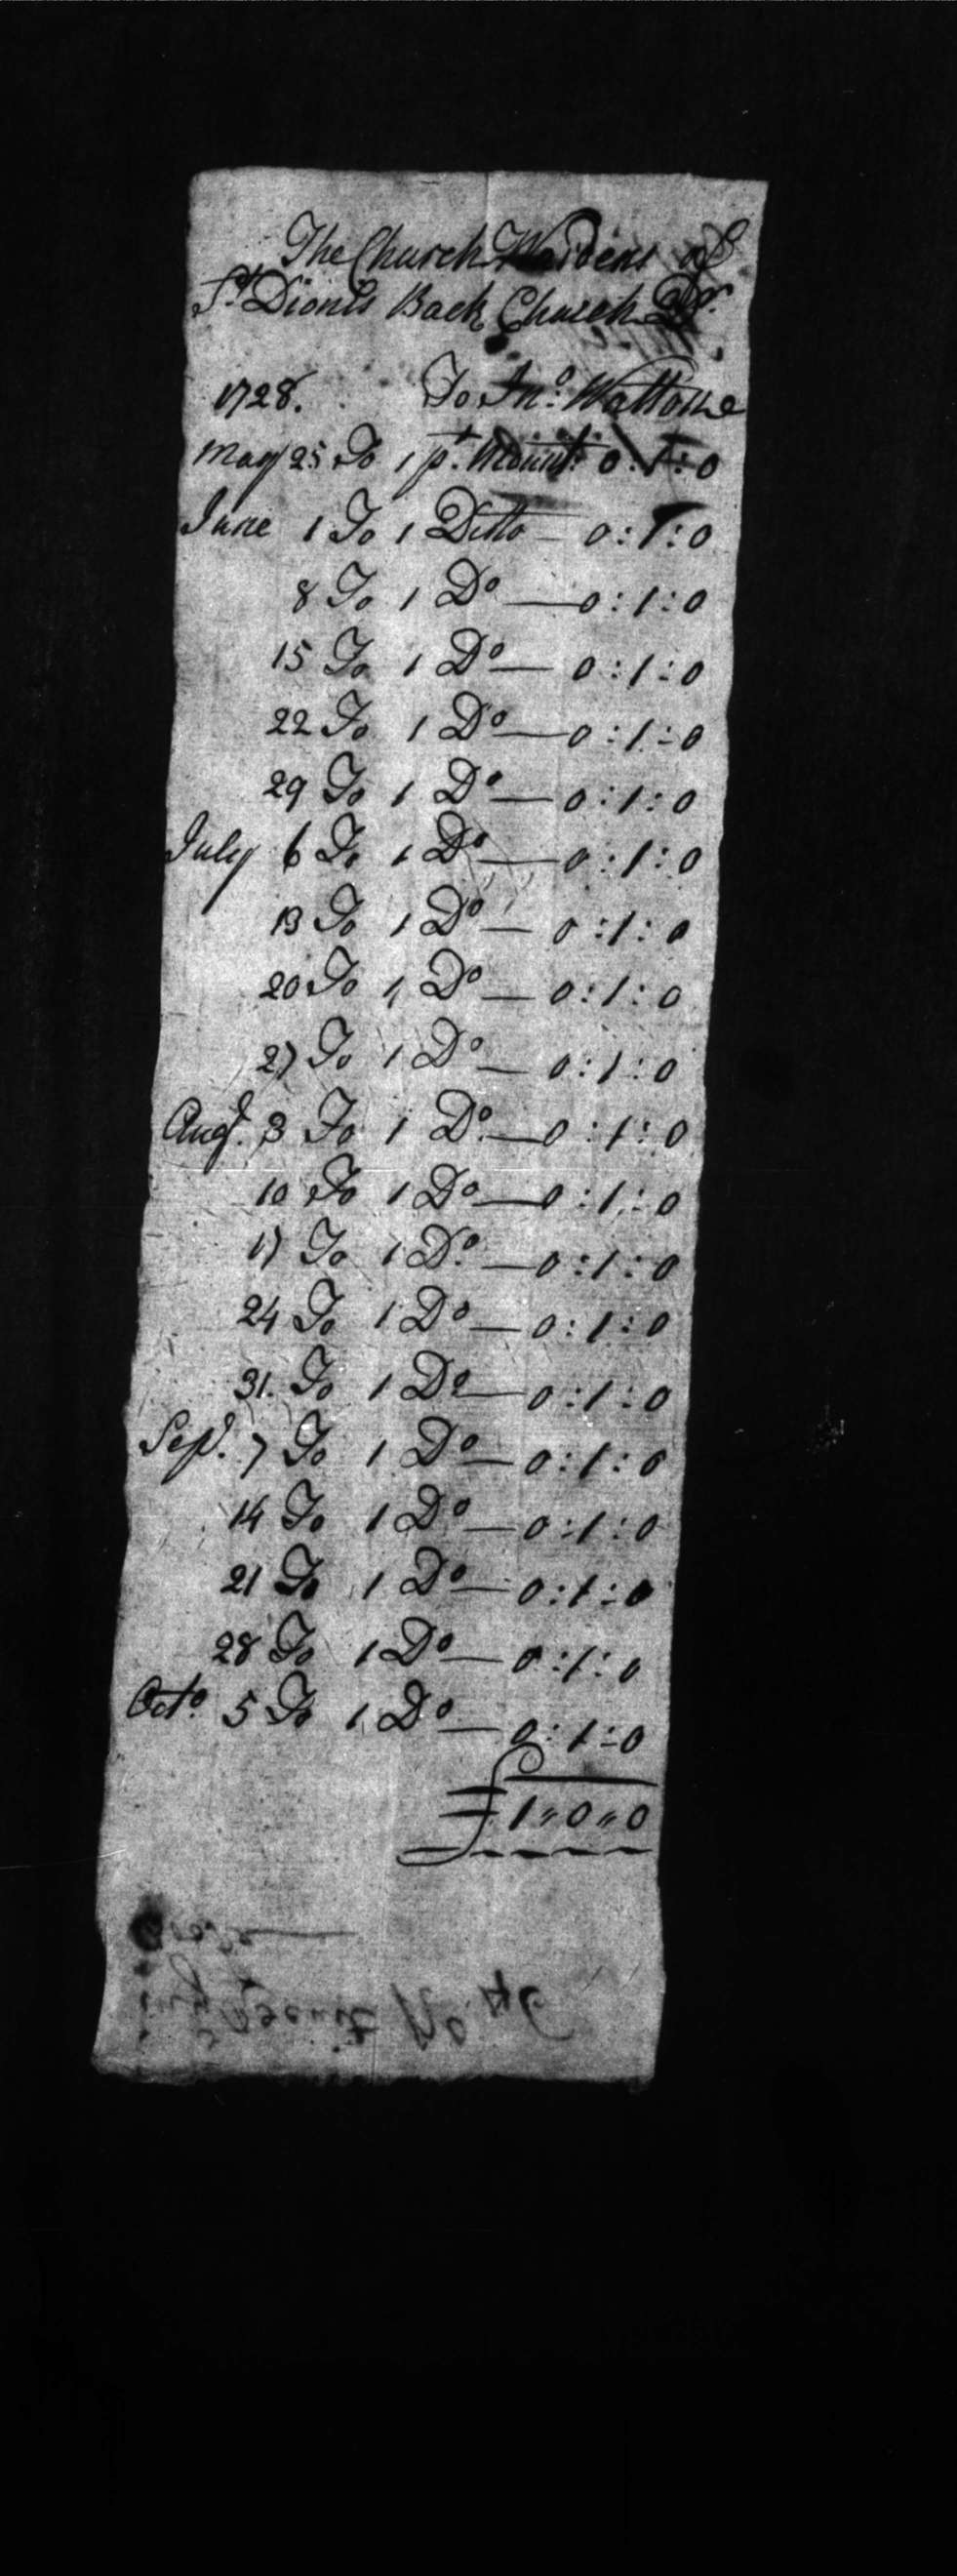 The Church Wardens of
St Dionis Back Church Dr.
1728. To Jno. Wattone
May 25 To 1 pt. Mount: 0:1:0
June 1 To 1 Ditto — 0:1:0
8 To 1 Do — 0:1:0
15 To 1 Do — 0:1:0
22 To 1 Do — 0:1:0
29 To 1 Do — 0:1:0
July 6 To 1 Do — 0:1:0
13 To 1 Do — 0:1:0
20 To 1 Do — 0:1:0
27 To 1 Do — 0:1:0
Augt. 3 To 1 Do. — 0:1:0
10 To 1 Do — 0:1:0
17 To 1 Do. — 0:1:0
24 To 1 Do — 0:1:0
31. To 1 Do — 0:1:0
Sept. 7 To 1 Do — 0:1:0
14 To 1 Do — 0:1:0
21 To 1 Do — 0:1:0
28 To 1 Do — 0:1:0
Octo. 5 To 1 Do — 0:1:0
£ 1"0"0